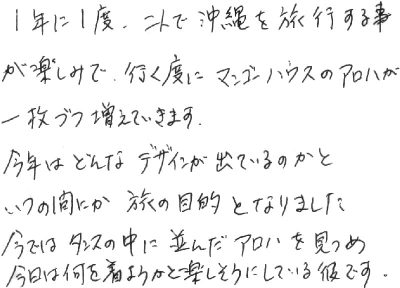 1年に1度、二人で沖縄を旅行する事
が楽しみで、行く度に マンゴハウスのアロハが
一枚づつ増えていきます。
今年はどんなデザインが出ているのかと
いつの間にか 旅の目的となりました
今ではタンスの中に並んだアロハを見つめ
今日は何を着ようかと楽しそうにしている彼です。